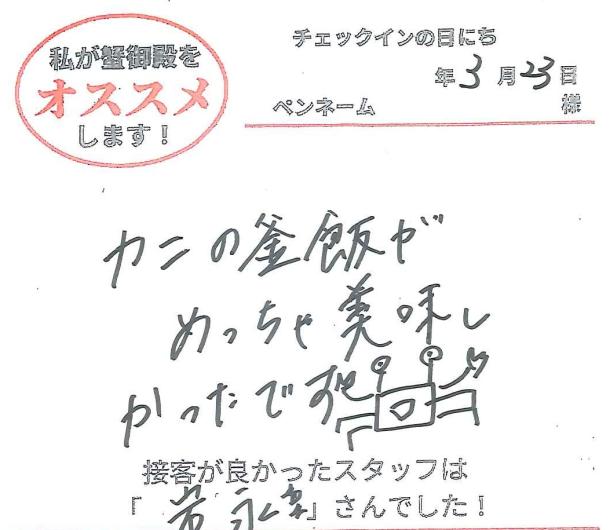 私が蟹御殿を
オススメ
します！
チェックインの日にち
年3月23日
ペンネーム 様
カニの釜飯が
めっちゃ美味し
かったです
接客が良かったスタッフは
「岩永 」さんでした！